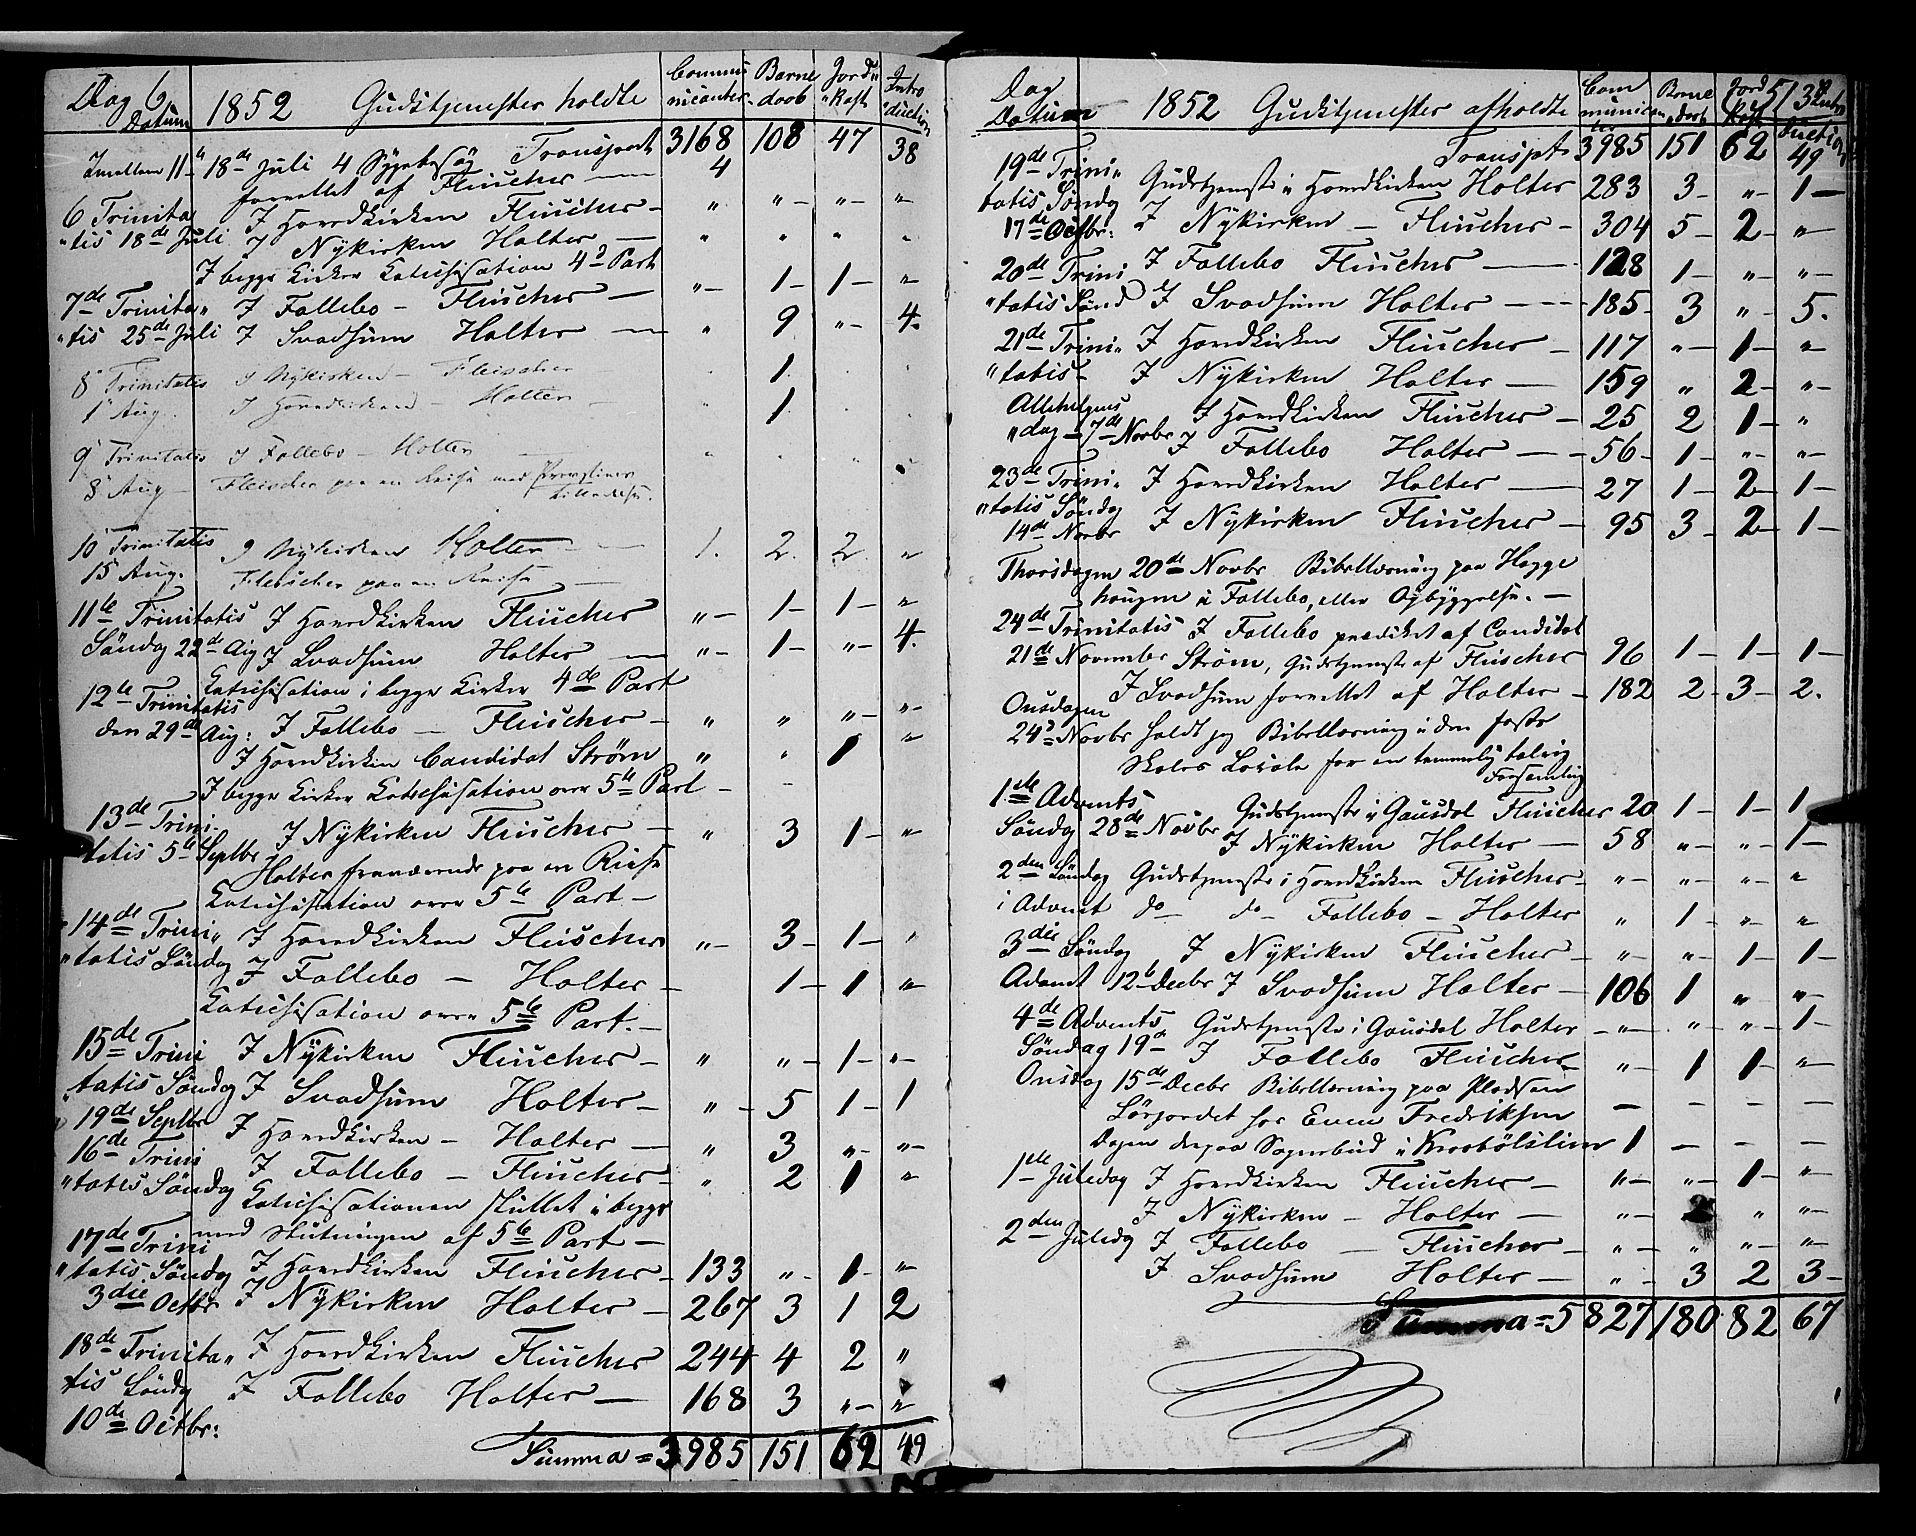 Dag & Datum 1852 Gudstjenester holdte Communicanter Barnedaab Jords Kast Introduction
Imellem 11te 18de Juli 4 Sygebesøg Transport 3168 108 47 38
forrettet af Fleischer — 4
6 Trinita I Hovedkirken Fleischer — " " — " — "
tis 18de Juli I Nykirken Holter — " " " "
I begge Kirker Katechisation 4de Part
7de Trinita" I Follebo — Fleischer — " — 1 — 1 — "
"tis 25de Juli I Svadsum Holter — " 9 " — 4.
8 Trinitatis I Nykirken — Fleischer 1.
1 Aug. I Hovedkirken — Holter 1
9 Trinitatis I Follebo — Holter
8 Aug — Fleischer paa en Reise med
10 Trinitatis I Nykirken Holter — 1. 2. 2. "
15 Aug. Fleischer paa en Reise —
11te Trinitatis I Hovedkirken Fleischer " — 1 — 1 — "
Søndag 22de Aug I Svadsum Holter — " — 1 — " — 4.
Katechisation i begge Kirker 4de Part
12te Trinitatis
den 29de Aug: I Follebo — Fleischer — " " " — " —
I Hovedkirken Candidat Strøm " " 1 "
I begge Kirker Katechisation over 5te Part —
13de Trini-
tatis 5te Septbr I Nykirken Fleischer — " 3 1 — "
Holter fraværende paa en Reise
Katechisation over 5te Part —
14de Trini" I Hovedkirken Fleischer " — 3 — 1 — "
"tatis Søndag I Follebo — Holter — 1 — 1 " —
Katechisation over 5te Part. —
15de Trini I Nykirken Fleischer — " " — 1 — " —
"tatis Søndag I Svadsum Holter — " — 5 1 — 1
19de Septbr
16de Trini I Hovedkirken — Holter — " 3 " — " —
"tatis Søndag I Follebo — Fleischer — " 2 1 "
Katechisationen sluttet i begge
med Slutningen af 5te Part —
17de Trini
"tatis Søndag I Hovedkirken Fleischer — 133 " — 1 — " —
3die Octbr I Nykirken Holter — 267 3 1 2
18de Trinita" I Hovedkirken Fleischer 244 4 2 "
tis Søndg I Follebo Holter — 168 3 " — " —
10de Octbr:
Summa = 3985 151 62 49
Dag Datum 1852 Gudstjenester afholdte Communicanter Barnedaab Jords Kast Introduction
Transpt 3985 151 62 49
19de Trini"
tatis Søndag Gudstjeneste i Hovedkirken Holter 283 3 — " — 1 —
17de Octbr: I Nykirken — Fleischer — 304 5 — 2 — " —
20de Trini I Follebo Fleischer — 128 1 — " — " —
"tatis Sønd I Svadsum Holter — 185 — 3 " — 5.
21de Trini" I Hovedkirken Fleischer — 117 " — 1 — "
"tatis — I Nykirken Holter — 159 " 2 — " —
Allehelgens
"dag — 7de Novbr I Hovedkirken Fleischer — 25 2 1 — "
I Follebo Holter — 56 — 1 — " — " —
23de Trini" I Hovedkirken Holter — 27 1 — 2 — 1 —
"tatis Søndag
14de Novbr I Nykirken Fleischer — 95 3 — 2 — 1 —
Thorsdagen 20de Novbr Bibellæsning paa Hagge
haugen i Follebo, eller Opbyggelse. —
24de Trinitatis I Follebo prædiket af Candidat
21de November Strøm, Gudstjeneste af Fleischer 96 1 — 1 — 1 —
I Svadsum forrettet af Holter — 182 2 — 3 — 2.
Onsdagen
24de Novbr holdt jeg Bibellæsning i den faste
Skoles Lokale for en temmelig talrig
Forsamling
1ste Advents Gudstjeneste i Gausdal Fleischer 20 1 — 1 — 1
Søndag 28de Novbr I Nykirken Holter — 58 " — " — 1 —
2den Søndag Gudstjeneste i Hovedkirken Fleischer — " — " — " — "
i Advent do do Follebo — Holter " 1 — " — "
3die Søndag I Nykirken Fleischer — " — " — 1 — 1 —
Advent 12te Decbr I Svadsum Holter — 106 1 " — " —
4de Advents Gudstjeneste i Gausdal Holter — " — " — " — 1 —
Søndag 19de I Follebo Fleischer — " — 1 1 — " —
Onsdag 15de Decbr Bibellæsning paa Pladsen
Lørjordet hos Even Fredriksen — — — —
Dagen derpaa Sognebud i Krosbølslien 1 — — —
1ste Juledag I Hovedkirken Fleischer — " — " — 1 — "
I Nykirken — Holter — " — " " —
2den Juledag I Follebo — Fleischer — " — " " — " —
I Svadsum Holter — " — 3 2 3 —
Summa = 5827 180 82 67